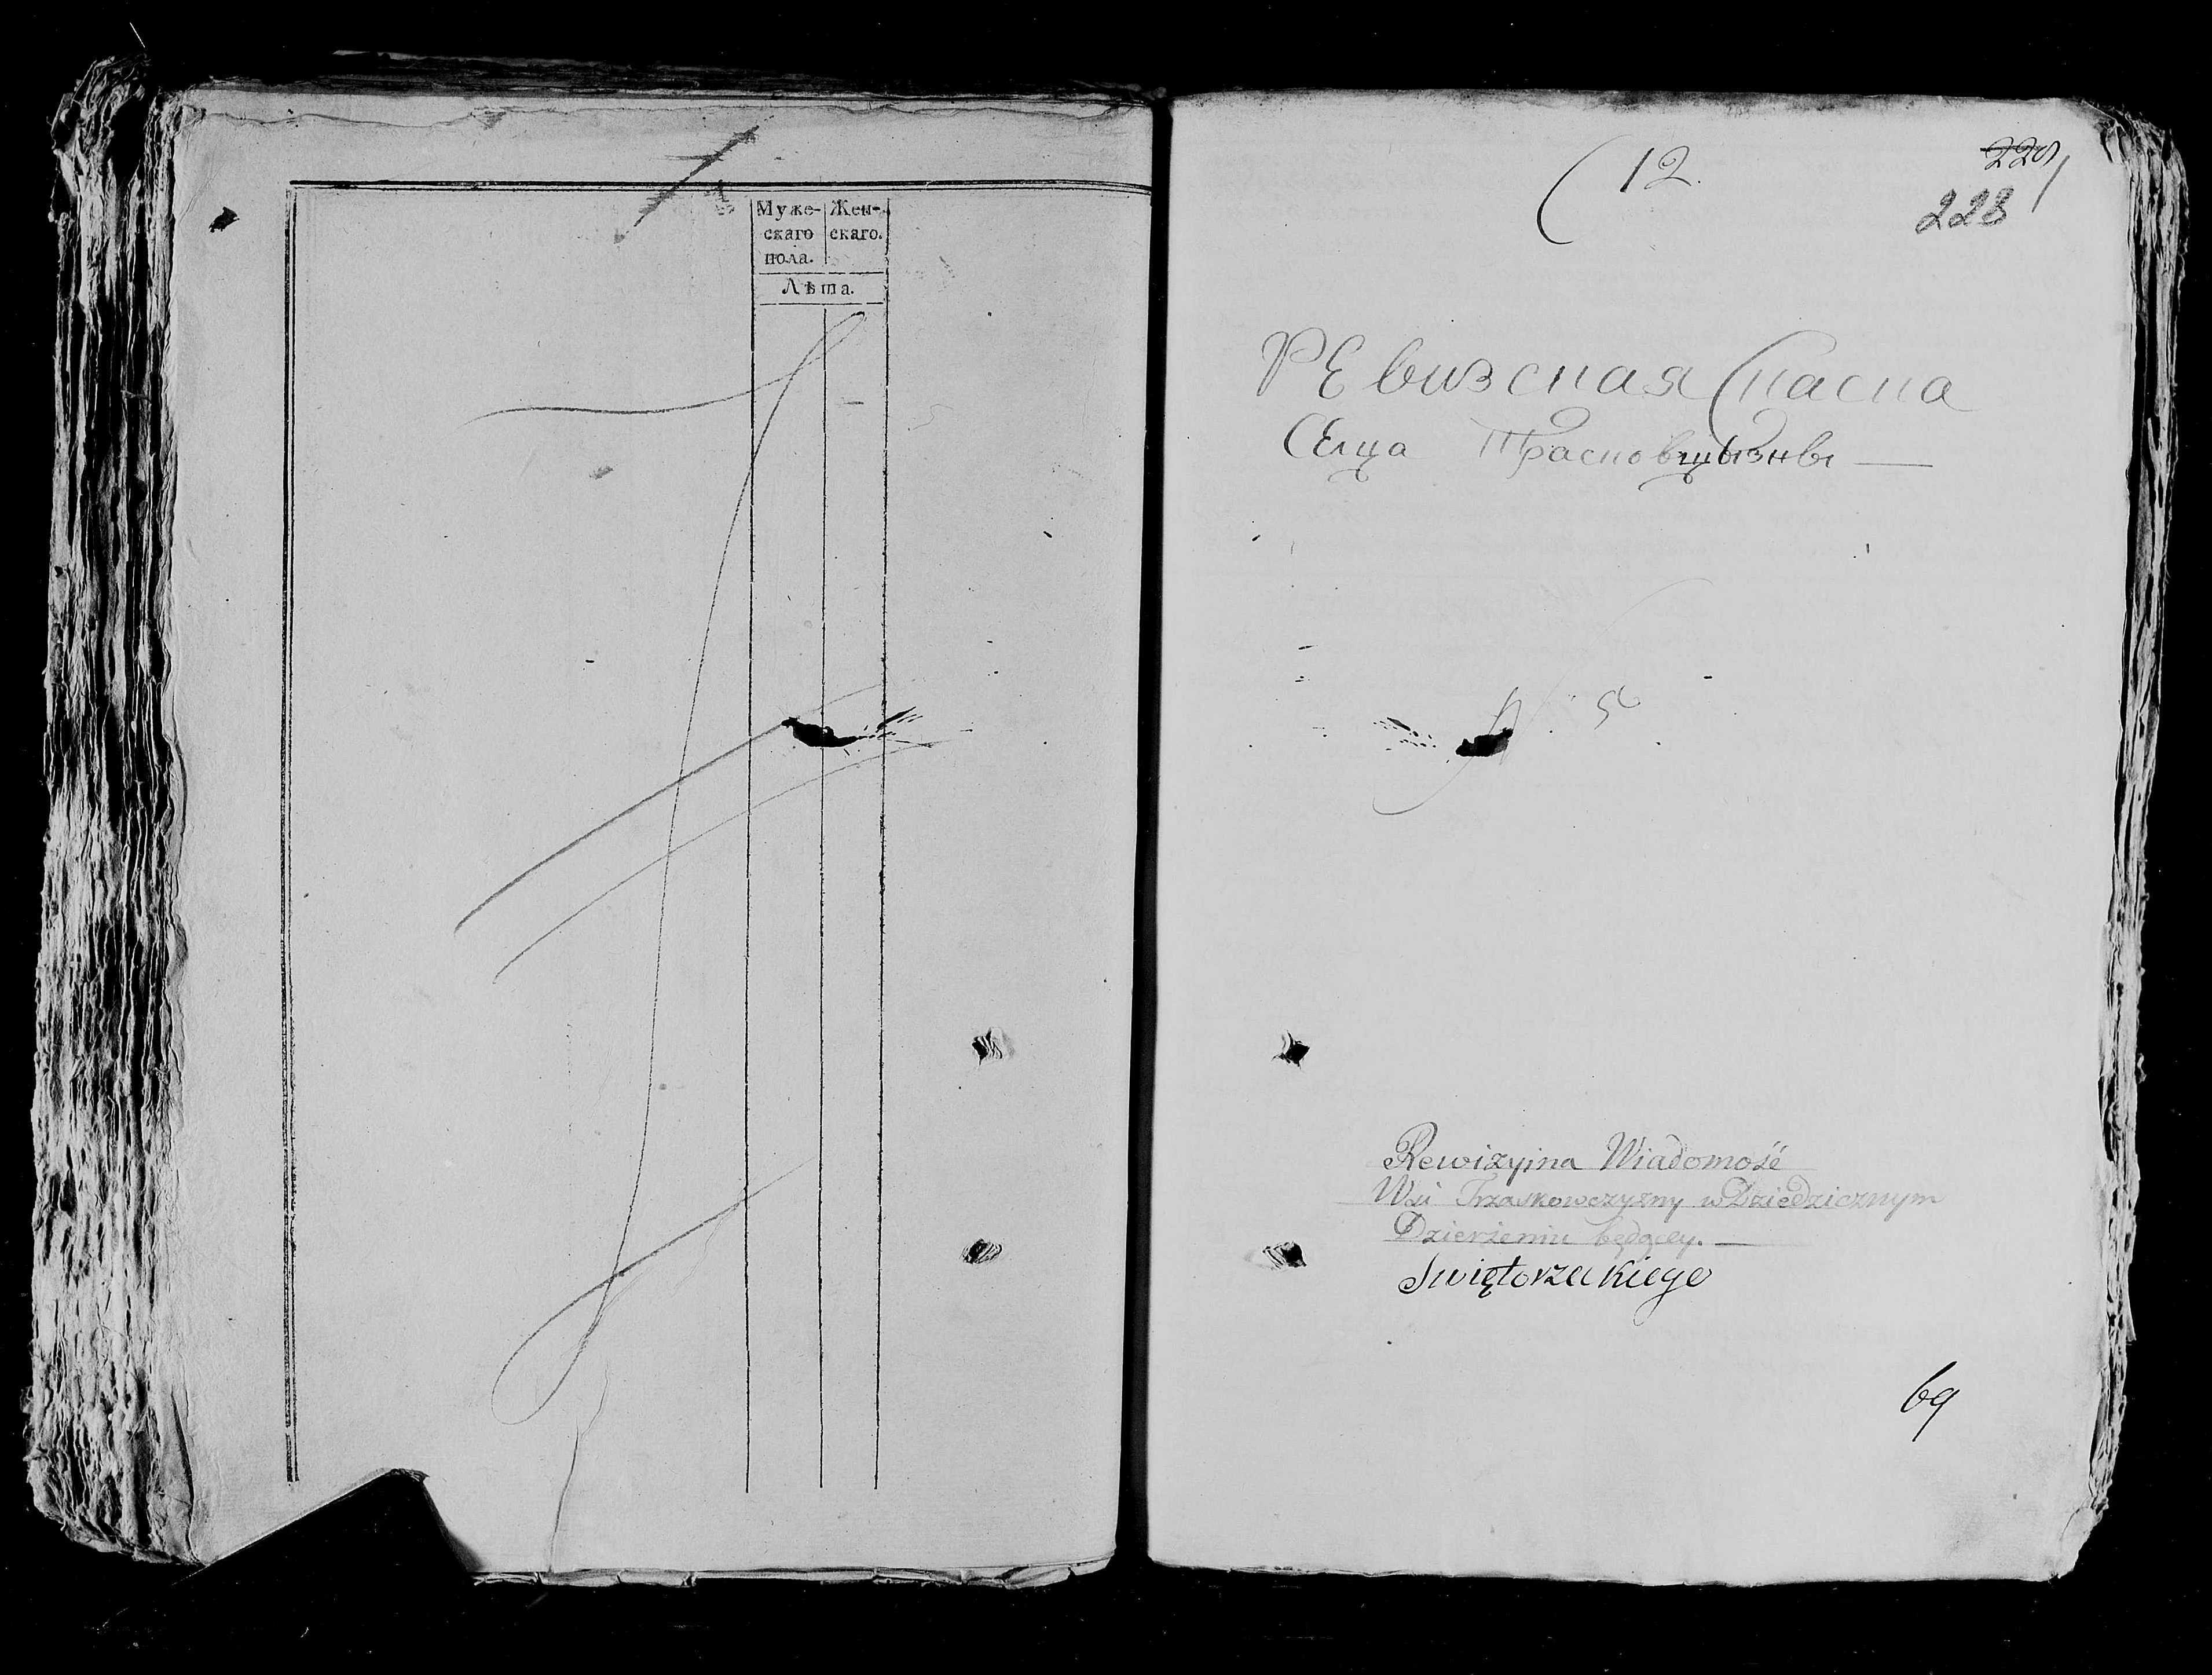 Муже- Жен-
скаго скаго.
пола.
Лѣта.
12.
229
228
Ревизская Сказка
Селца Трасковщызны
Rewizyina Wiadomość
Wsi Trzaskowczyzny w Dziedzicznym
Dzierżeniu będącey.
Swiętorzeckiego
69